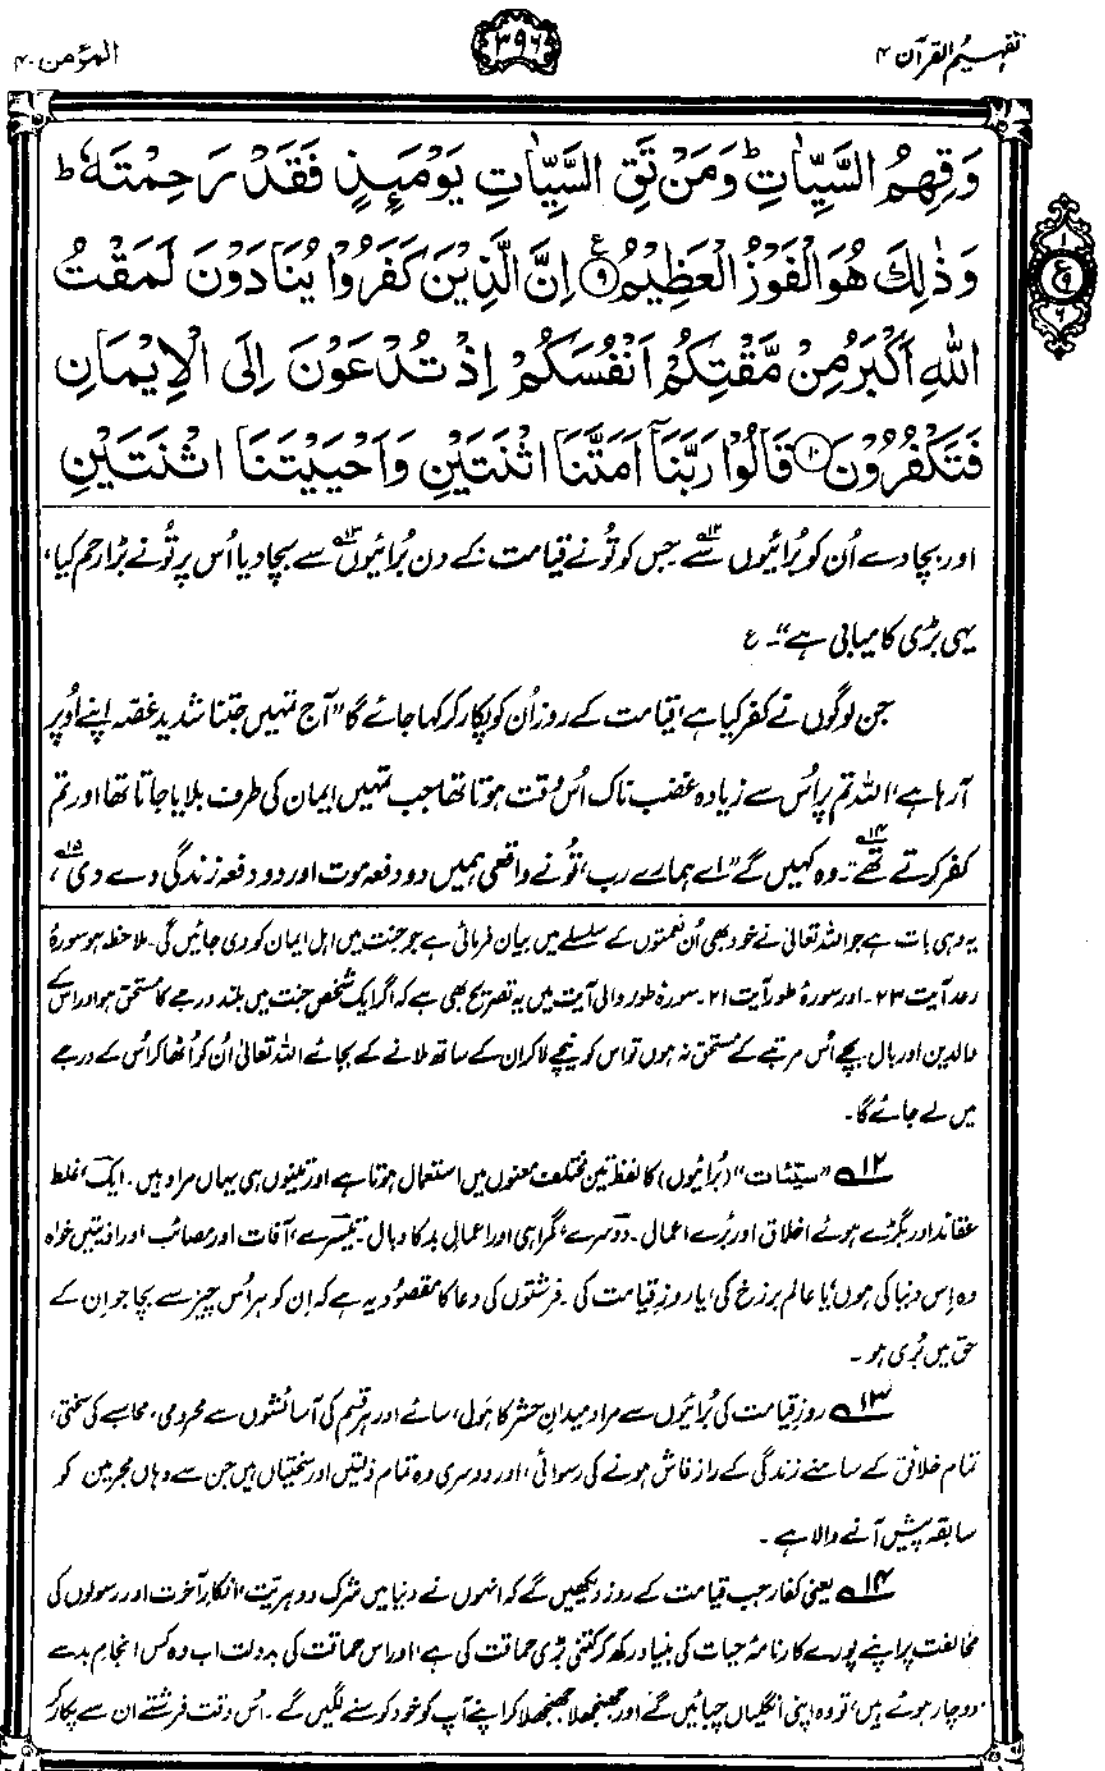 تفہیم القرآن ۴
۳۹۶
المؤمن ۴۰
وَقِهِمُ السَّيِّاٰتِ ؕ وَمَنْ تَقِ السَّيِّاٰتِ يَوْمَىِٕذٍ فَقَدْ رَحِمْتَهٗ ؕ
وَذٰلِكَ هُوَ الْفَوْزُ الْعَظِيْمُ ۹ ع اِنَّ الَّذِيْنَ كَفَرُوْا يُنَادَوْنَ لَمَقْتُ
۱
ع
۹
۶
اللّٰهِ اَكْبَرُ مِنْ مَّقْتِكُمْ اَنْفُسَكُمْ اِذْ تُدْعَوْنَ اِلَى الْاِيْمَانِ
فَتَكْفُرُوْنَ ۱۰ قَالُوْا رَبَّنَآ اَمَتَّنَا اثْنَتَيْنِ وَاَحْيَيْتَنَا اثْنَتَيْنِ
اور بچا دے اُن کو بُرائیوں سے ۱۲؎ جس کو تُو نے قیامت کے دن بُرائیوں ۱۳؎ سے بچا دیا اُس پر تُو نے بڑا رحم کیا،
یہی بڑی کامیابی ہے“۔ ع
جن لوگوں نے کفر کیا ہے، قیامت کے روز اُن کو پکار کر کہا جائے گا ”آج تمہیں جتنا شدید غصہ اپنے اُوپر
آ رہا ہے، اللہ تم پر اُس سے زیادہ غضب ناک اُس وقت ہوتا تھا جب تمہیں ایمان کی طرف بلایا جاتا تھا اور تم
کفر کرتے تھے“۔ ۱۴؎ وہ کہیں گے ”اے ہمارے رب، تُو نے واقعی ہمیں دو دفعہ موت اور دو دفعہ زندگی دے دی ۱۵؎،
یہ وہی بات ہے جو اللہ تعالیٰ نے خود بھی اُن نعمتوں کے سلسلے میں بیان فرمائی ہے جو جنت میں اہل ایمان کو دی جائیں گی۔ ملاحظہ ہو سورۂ
رعد آیت ۲۳۔ اور سورۂ طور آیت ۲۱۔ سورۂ طور والی آیت میں یہ تصریح بھی ہے کہ اگر ایک شخص جنت میں بلند درجے کا مستحق ہو اور اس کے
والدین اور بال بچے اُس مرتبے کے مستحق نہ ہوں تو اس کو نیچے لا کر ان کے ساتھ ملانے کے بجائے اللہ تعالیٰ اُن کو اُٹھا کر اُس کے درجے
میں لے جائے گا۔
۱۲؎ ”سیّئات“ (بُرائیوں) کا لفظ تین مختلف معنوں میں استعمال ہوتا ہے اور تینوں ہی یہاں مراد ہیں۔ ایک، غلط
عقائد اور بگڑے ہوئے اخلاق اور بُرے اعمال۔ دوسرے، گمراہی اور اعمالِ بد کا وبال۔ تیسرے، آفات اور مصائب اور اذیتیں خواہ
وہ اِس دنیا کی ہوں، یا عالمِ برزخ کی، یا روزِ قیامت کی۔ فرشتوں کی دعا کا مقصُود یہ ہے کہ اِن کو ہر اُس چیز سے بچا جو اِن کے
حق میں بُری ہو۔
۱۳؎ روزِ قیامت کی بُرائیوں سے مراد میدانِ حشر کا ہَول، سائے اور ہر قسم کی آسائشوں سے محرومی، محاسبے کی سختی،
تمام خلائق کے سامنے زندگی کے راز فاش ہونے کی رسوائی، اور دوسری وہ تمام ذلتیں اور سختیاں ہیں جن سے وہاں مجرمین کو
سابقہ پیش آنے والا ہے۔
۱۴؎ یعنی کفار جب قیامت کے روز دیکھیں گے کہ انہوں نے دنیا میں شرک و دہریّت، انکارِ آخرت اور رسولوں کی
مخالفت پر اپنے پورے کارنامۂ حیات کی بنیاد رکھ کر کتنی بڑی حماقت کی ہے، اور اس حماقت کی بدولت اب وہ کس انجامِ بد سے
دوچار ہوئے ہیں، تو وہ اپنی انگلیاں چبائیں گے اور جھنجھلا جھنجھلا کر اپنے آپ کو خود کوسنے لگیں گے۔ اُس وقت فرشتے ان سے پکار کر